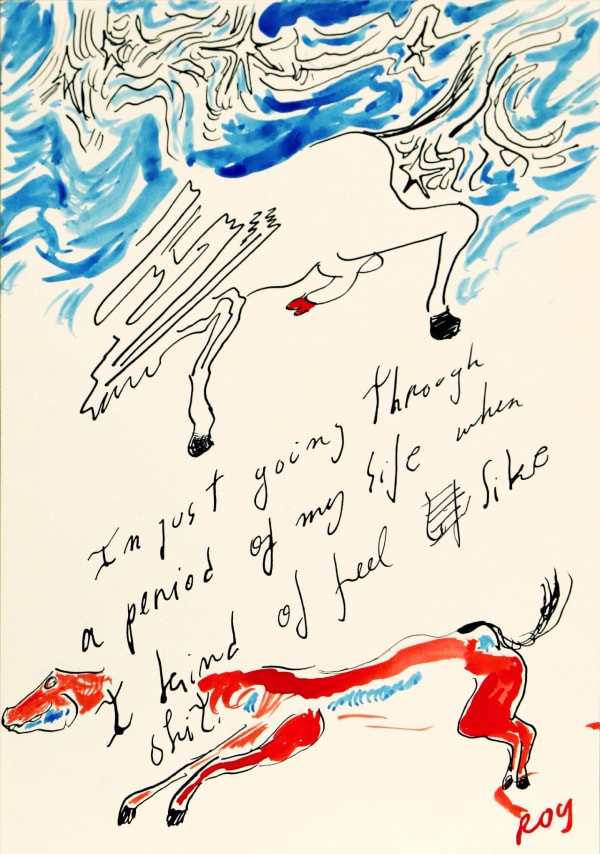 I'm just going through
a period of my life when
I kind of feel like
shit.
ROY